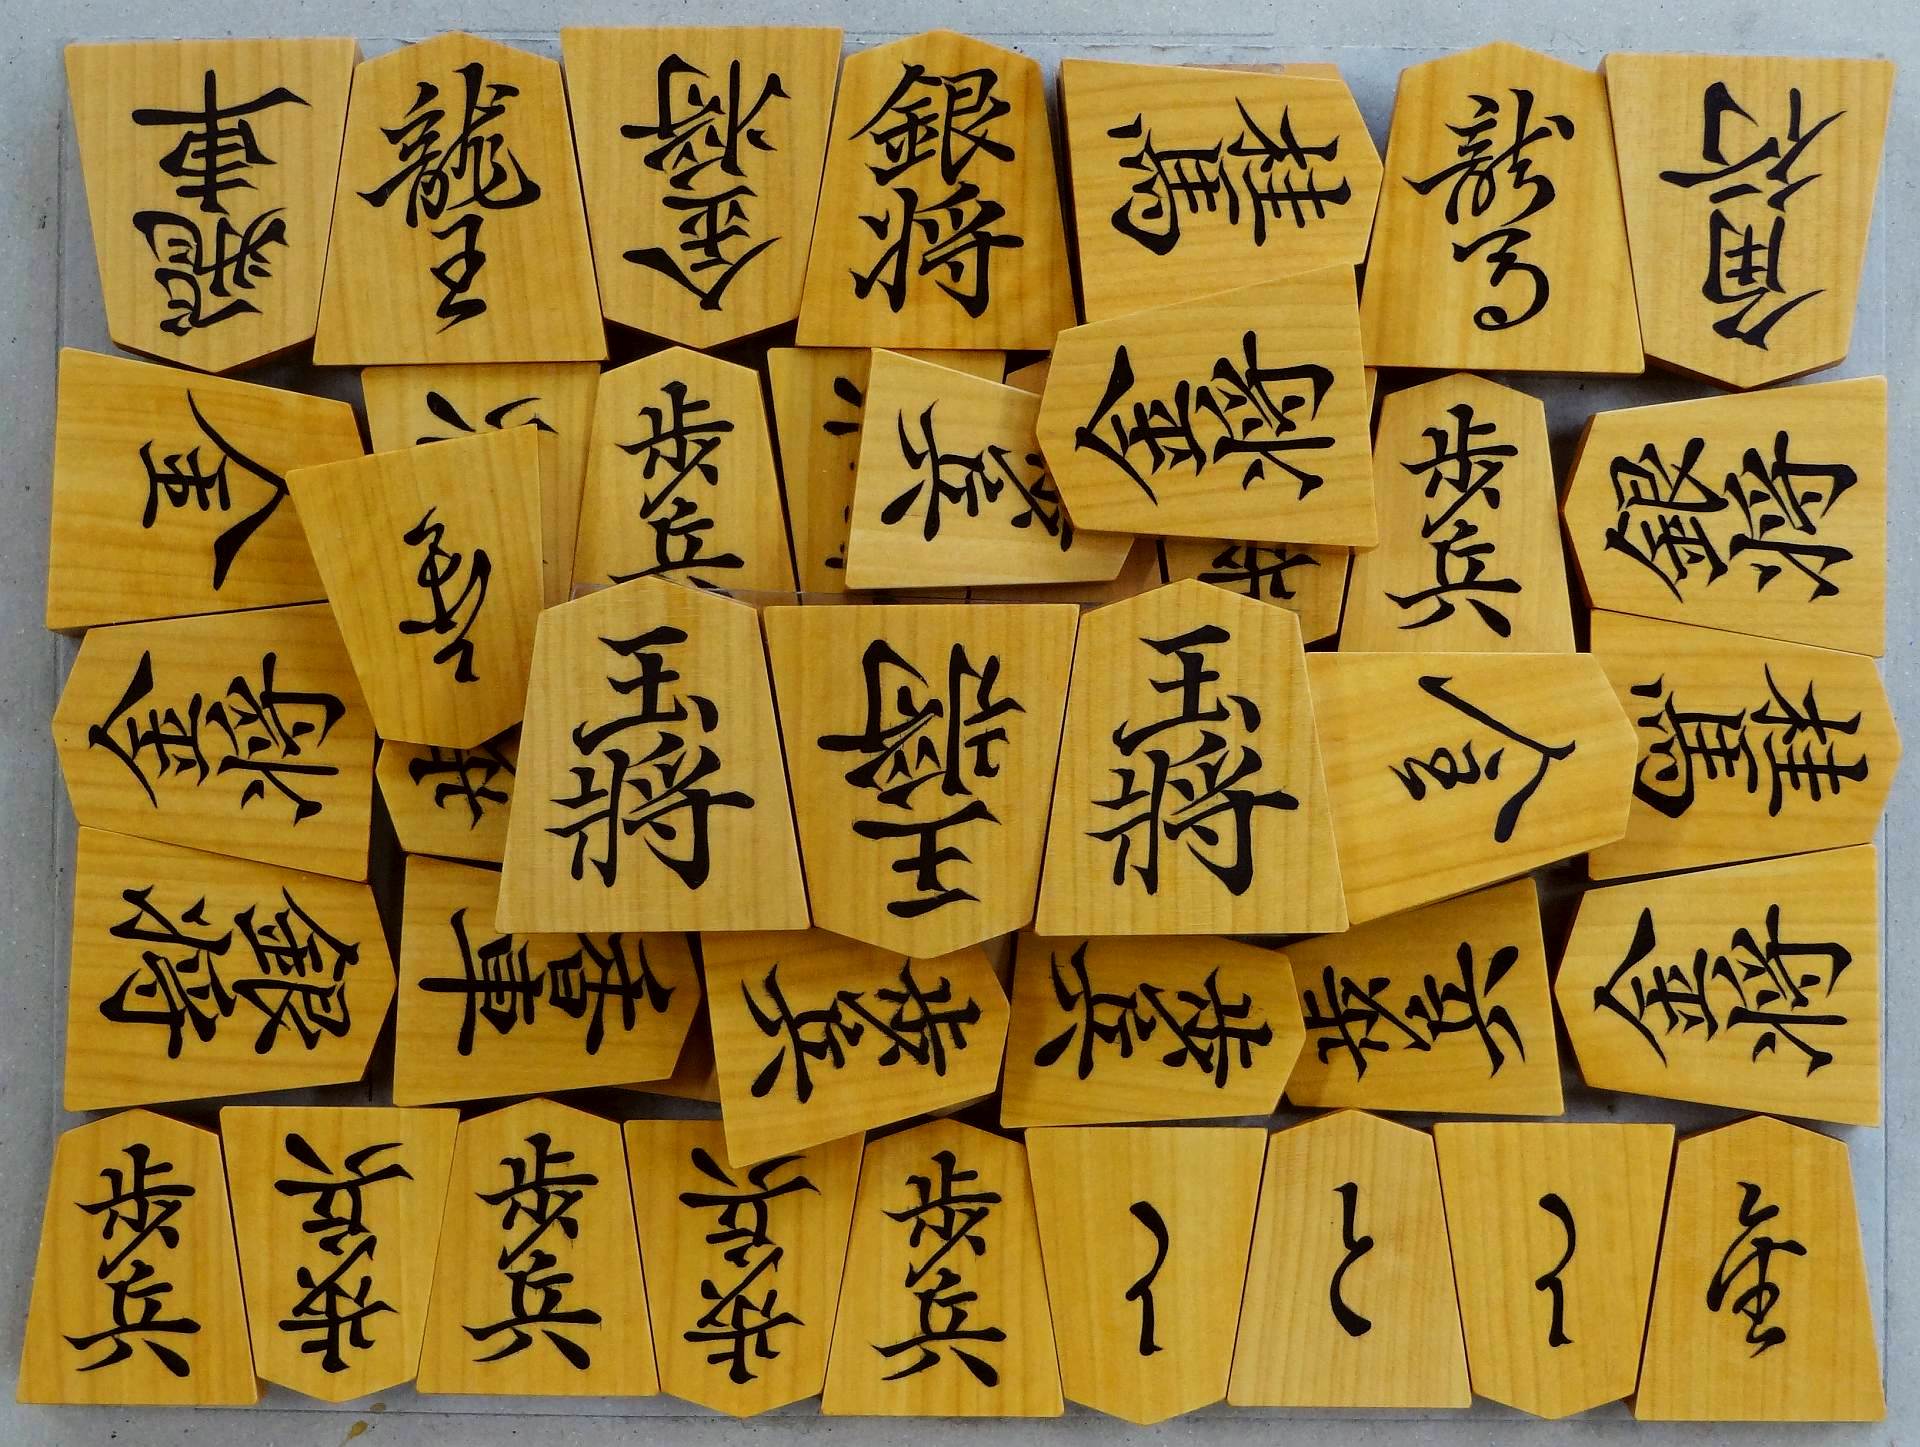 飛車
龍王
金将
銀将
桂馬
龍馬
角行
金
兵
歩兵
歩兵
金将
歩兵
銀将
金将
玉将
玉将
玉将
桂馬
銀将
香車
歩兵
歩兵
歩兵
金将
歩兵
歩兵
歩兵
歩兵
歩兵
と
と
と